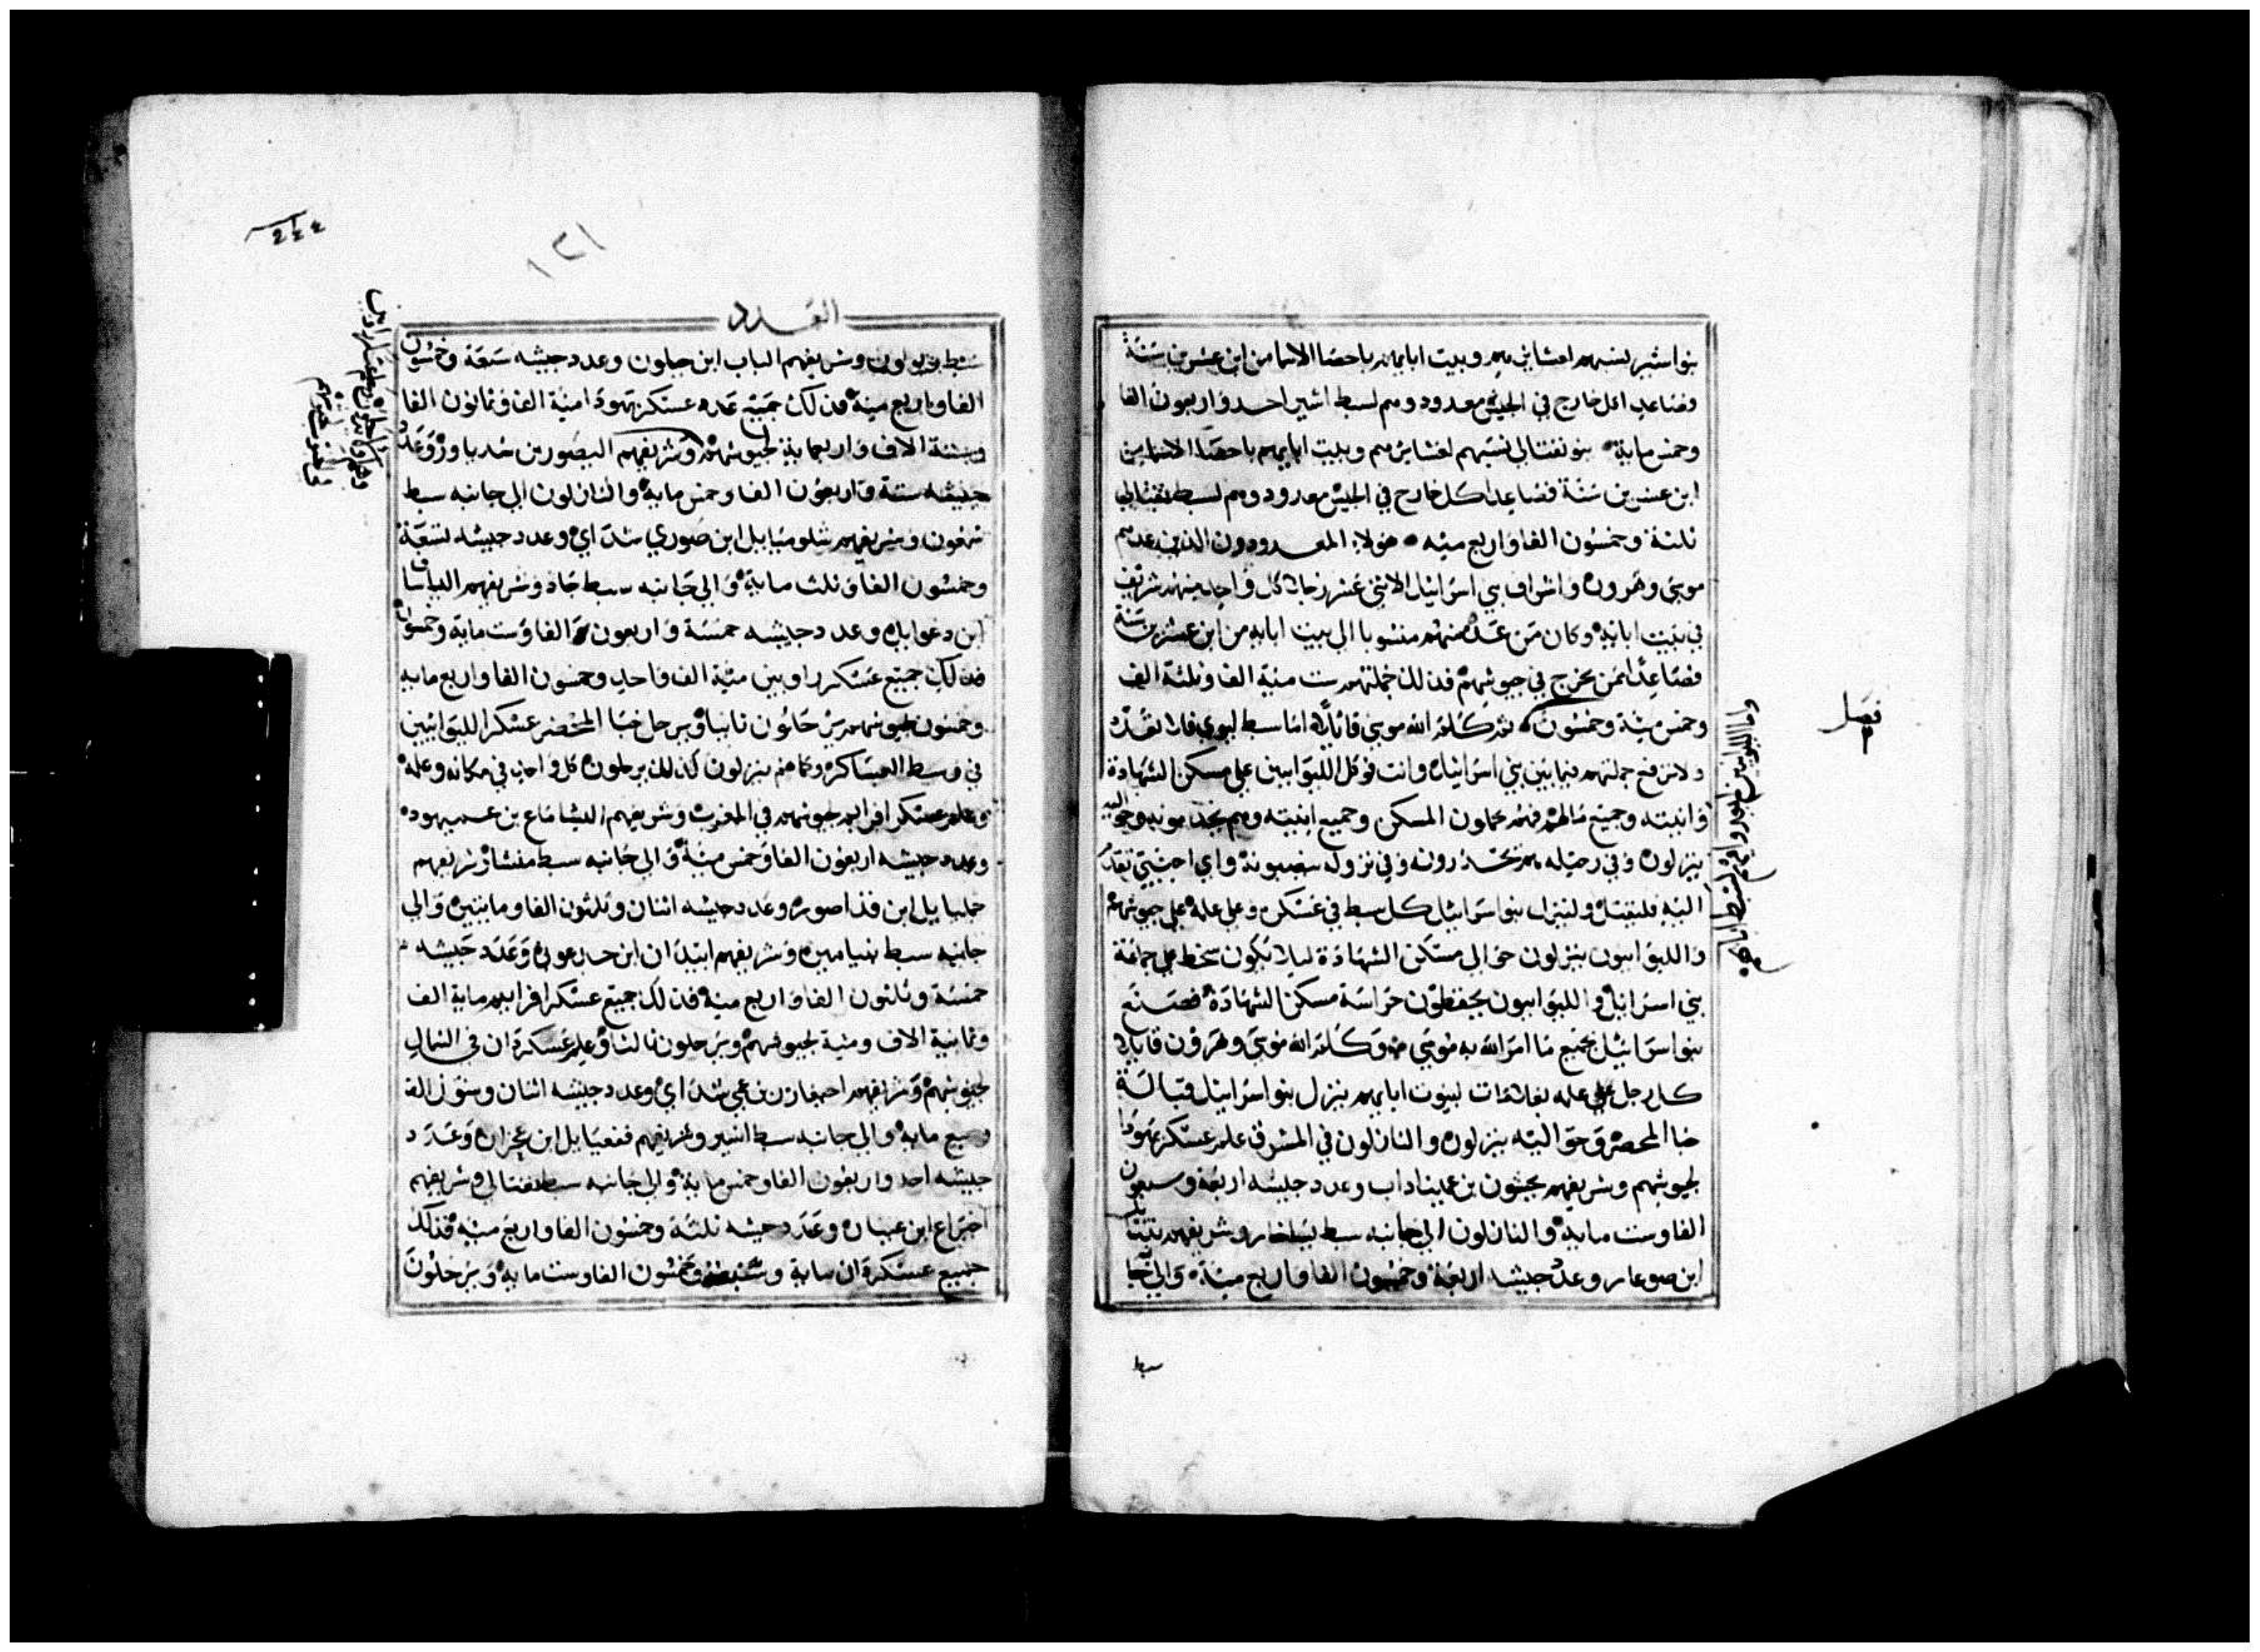 بنو اشير لنسبهم لعشايرهم وبيت ابايهم باحصا الاسما من ابن عشرين سنة
فصاعدا كل خارج في الجيش معدود وهم لسبط اشير احد واربعون الفا
وخمس ماية بنو نفتالي لنسبهم لعشايرهم وبيت ابايهم باحصا الاسما من
ابن عشرين سنة فصاعدا كل خارج في الجيش معدود وهم لسبط نفتالي
ثلثة وخمسون الفا واربع ميه هولاء المعدودون الذين عدهم
موسي وهرون واشراف بني اسراييل الاثني عشر رجلا كل واحد منهم شريف
في بيت ابايه وكان من عد منهم منسوبا الي بيت ابايه من ابن عشرين سنة
فصاعدا ممن يخرج في جيوشهم فذلك جملتهم ست مية الف وثلثة الف
وخمس مية وخمسون ثم كلم الله موسي قايلا اما سبط ليوي فلا تعده
ولا ترفع جملتهم فيما بين بني اسراييل وانت فوكل الليوايين علي مسكن الشهادة
وانيته وجميع ماله فهم يحملون المسكن وجميع انيته وهم يخدمونه وحواليه
ينزلون وفي رحيله هم يحدرونه وفي نزوله ينصبونه واي اجنبي تقدم
اليه فليقتل ولينزل بنو اسراييل كل سبط في عسكره وعلي علمه علي جيوشهم
والليوايون ينزلون حوالي مسكن الشهادة ليلا يكون سخط علي جماعة
بني اسراييل والليوايون يحفظون حراسة مسكن الشهادة فصنع
بنو اسراييل بجميع ما امر الله به موسي وكلم الله موسي وهرون قايلا
كل رجل علي علمه بعلامات لبيوت ابايهم ينزل بنو اسراييل قبالة
خبا المحضر وحواليه ينزلون والنازلون في المشرق علم عسكر يهودا
لجيوشهم وشريفهم نحشون بن عميناداب وعدد جيشه اربعة وسبعون
الفا وست ماية والنازلون الي جانبه سبط يساخار وشريفهم نثنايل
ابن صوعار وعدد جيشه اربعة وخمسون الفا واربع مية والي جا
سبط
فصل
٢
العدد
١٢١
سبط زبولون وشريفهم الياب ابن حيلون وعدد جيشه سبعة وخمسون
الفا واربع مية فذلك جميع عدد عسكر يهودا مية الف وثمانون الفا
وستة الاف واربعماية لجيوشهم وشريفهم اليصور بن شدياور وعدد
جيشه ستة واربعون الفا وخمس ماية والنازلون الي جانبه سبط
شمعون وشريفهم شلوميايل ابن صوري شداي وعدد جيشه تسعة
وخمسون الفا وثلث ماية والي جانبه سبط جاد وشريفهم الياساف
ابن دعوايل وعدد جيشه خمسة واربعون الفا وست ماية وخمسون
فذلك جميع عسكر راوبين مية الف واحد وخمسون الفا واربع ماية
وخمسون لجيوشهم يرحلون ثانيا ويرحل خبا المحضر عسكر الليوايين
في وسط العساكر وكما هم ينزلون كذلك يرحلون كل واحد في مكانه وعلمه
وعلم عسكر افرايم لجيوشهم في المغرب وشريفهم اليشاماع بن عميهود
وعدد جيشه اربعون الفا وخمس مية والي جانبه سبط منشا وشريفهم
جمليايل ابن فداصور وعدد جيشه اثنان وثلثون الفا ومايتين والي
جانبه سبط بنيامين وشريفهم ابيدان ابن جدعوني وعدد جيشه
خمسة وثلثون الفا واربع مية فذلك جميع عسكر افرايم ماية الف
وثمانية الاف ومية لجيوشهم ويرحلون ثالثا وعلم عسكر دان في الشمال
لجيوشهم وشريفهم احيعازر بن عمي شداي وعدد جيشه اثنان وستون الف
وسبع ماية والي جانبه سبط اشير وشريفهم فجعيايل ابن عجران وعدد
جيشه احد واربعون الفا وخمس ماية والي جانبه سبط نفتالي وشريفهم
اخيراع ابن عينان وعدد جيشه ثلثة وخمسون الفا واربع ميه فذلك
جميع عسكر دان ماية وسبعة وخمسون الفا وست ماية ويرحلون